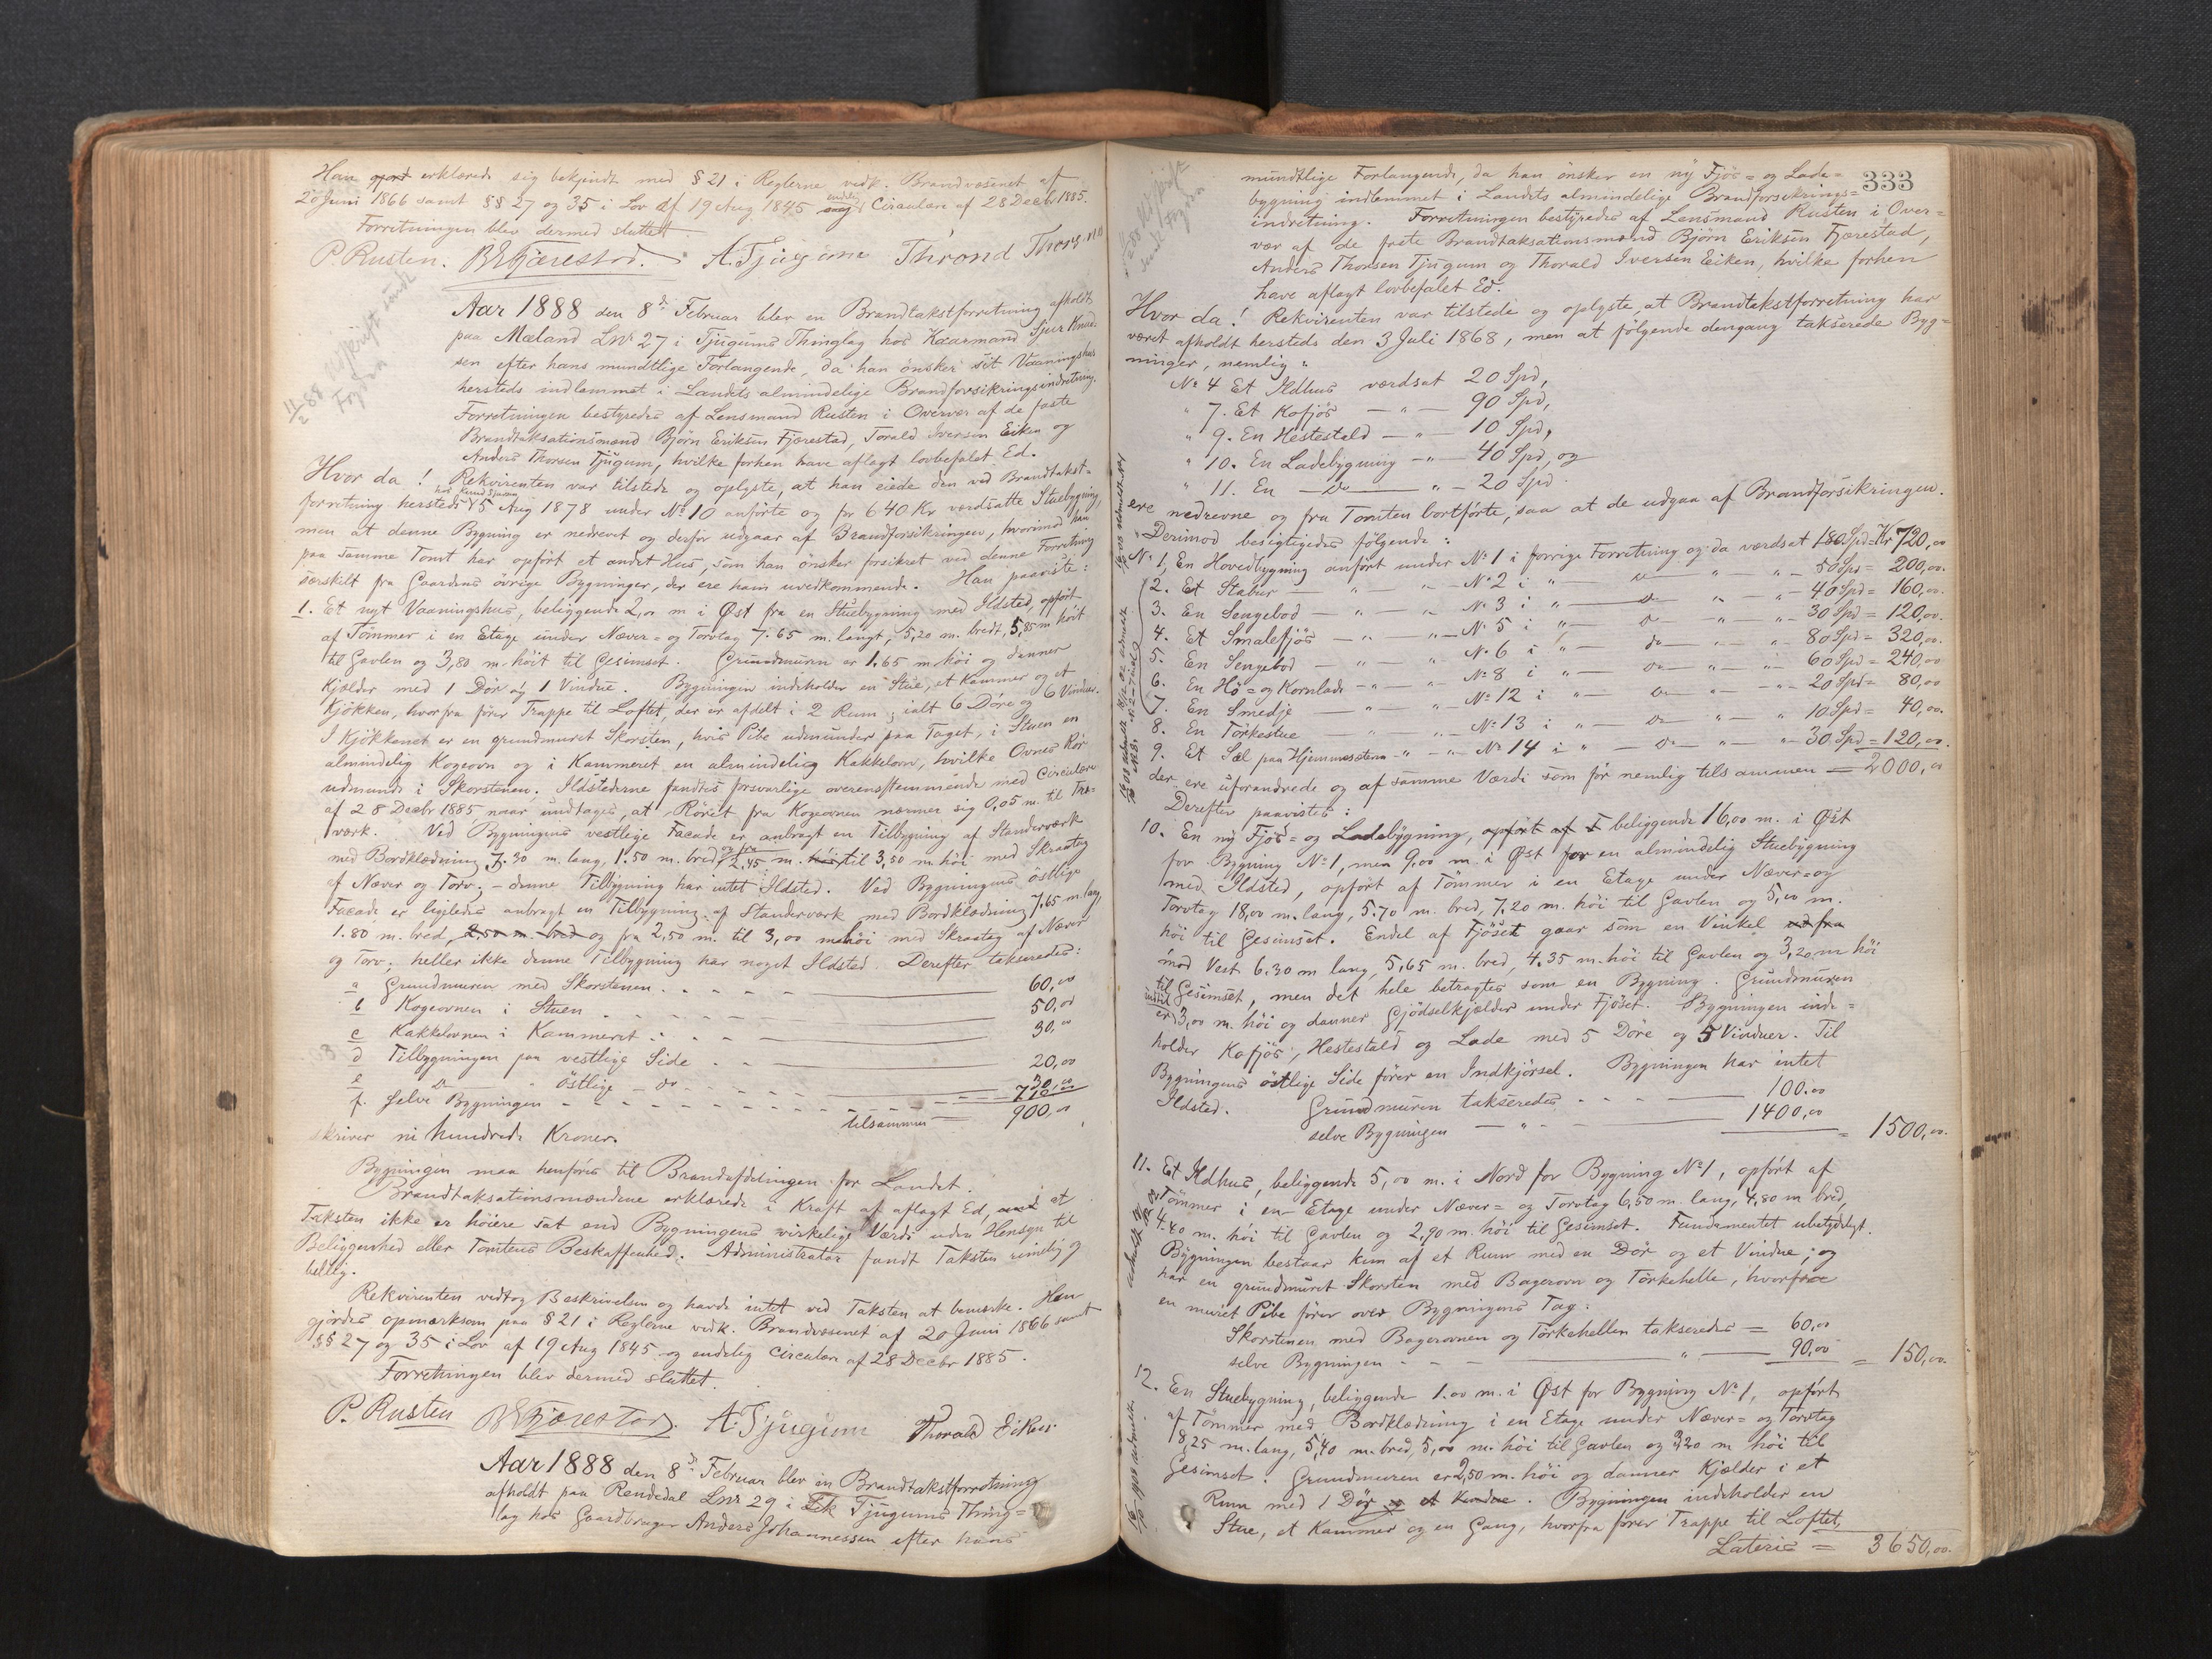 Han erklærede sig bekjendt med § 21 i Reglerne vedk. Brandvæsenet af
20 Juni 1866 samt §§ 27 og 35 i Lov af 19 Aug 1845 endelig Circulære af 28 Decbr 1885.
Forretningen blev dermed sluttet.
P. Rusten. BEFjærestad. A. Tjugum Thrond
11/2 88 Udskrift sendt
Fogden
Aar 1888 den 8de Februar blev en Brandtakstforretning afholdt
paa Mæland LNr 27 i Tjugums Thinglag hos Kaarmand Sjur Knud-
sen efter hans mundtlige Forlangende, da han ønsker sit Vaaningshus
hersteds indlemmet i Landets almindelige Brandforsikringsindretning.
Forretningen bestyredes af Lensmand Rusten i Overvær af de faste
Brandtaksationsmænd Bjørn Eriksen Fjærestad, Torald Iversen Eiken og
Anders Thorsen Tjugum, hvilke forhen have aflagt lovbefalet Ed.
Hvor da! Rekvirenten var tilstede og oplyste, at han eiede den ved Brandtakst-
forretning hersteds hos Knud Sjursen 5 Aug 1878 under No 10 anførte og for 640 Kr værdsatte Stuebygning,
men at denne Bygning er nedrevet og derfor udgaar af Brandforsikringen, hvorimod han
paa samme Tomt har opført et andet Hus, som han ønsker forsikret ved denne Forretning
særskilt fra Gaardens øvrige Bygninger, der ere ham uvedkommende. Han paaviste:
1. Et nyt Vaaningshus, beliggende 2,00 m i Øst fra en Stuebygning med Ildsted, opført
af Tømmer i en Etage under Næver- og Torvtag 7.65 m. langt, 5,20 m. bredt, 5,85 m høit
til Gavlen og 3,80 m. høit til Gesimset. Grundmuren er 1.65 m høi og danner
Kjælder med 1 Dør og 1 Vindue. Bygningen indeholder en Stue, et Kammer og et
Kjøkken, hvorfra fører Trappe til Loftet, der er afdelt i 2 Rum; ialt 6 Døre og 6 Vinduer.
I Kjøkkenet er en grundmuret Skorsten, hvis Pibe udmunder paa Taget, i Stuen en
almindelig Kogeovn og i Kammeret en almindelig Kakkelovn, hvilke Ovnes Rør
udmunde i Skorstenen. Ildstederne fandtes forsvarlige overensstemmende med Circulære
af 28 Decbr 1885 naar undtages, at Røret fra Kogeovnen nærmer sig 0,05 m. til Træ-
værk. Ved Bygningens vestlige Facade er anbragt en Tilbygning af Stenderværk
med Bordklædning 7.30 m. lang, 1.50 m. bred, og fra 2,45 m. høi til 3,50 m. høi med Skraatag
af Næver og Torv; - denne Tilbygning har intet Ildsted. Ved Bygningens østlige
Facade er ligeledes anbragt en Tilbygning af Standerværk med Bordklædning 7,65 m. lang,
1.80 m. bred, 2,50 m. bred og fra 2,50 m. til 3,00 m høi med Skraatag af Næver
og Torv; heller ikke denne Tilbygning har noget Ildsted. Derefter takseredes:
a Grundmuren med Skorstenen 60,00
b Kogeovnen i Stuen 50,00
c Kakkelovnen i Kammeret 30,00
d Tilbygningen paa vestlige Side 20,00
e do " østlige do 30,00
f. selve Bygningen 710,00
tilsammen 900,00
skriver ni hundrede Kroner.
Bygningen maa henføres til Brandafdelingen for Landet.
Brandtaksationsmændene erklærede i Kraft af aflagt Ed, at
Taksten ikke er høiere sat end Bygningens virkelige Værdi uden Hensyn til
Beliggenhed eller Tomtens Beskaffenhed. Administrator fandt Taksten rimelig og
billig.
Rekvirenten vedtog Beskrivelsen og havde intet ved Taksten at bemærke. Han
gjordes opmærksom paa § 21 i Reglerne vedk. Brandvæsenet af 20 Juni 1866 samt
§§ 27 og 35 i Lov af 19 Aug 1845 og endelig Circulære af 28 Decbr 1885.
Forretningen blev dermed sluttet.
P. Rusten BEFjærestad. A. Tjugum Thorald Eiken
Aar 1888 den 8de Februar blev en Brandtakstforretning
afholdt paa Rendedal LNr 29 i Tjugums Thing-
lag hos Gaardbruger Anders Johannessen efter hans
333
mundtlige Forlangende, da han ønsker en ny Fjøs- og Lade-
bygning indlemmet i Landets almindelige Brandforsikrings-
indretning. Forretningen bestyredes af Lensmand Rusten i Over-
vær af de faste Brandtaksationsmænd Bjørn Eriksen Fjærestad,
Anders Thorsen Tjugum og Thorald Iversen Eiken, hvilke forhen
have aflagt lovbefalet Ed.
Hvor da! Rekvirenten var tilstede og oplyste, at Brandtakstforretning har
været afholdt hersteds den 3 Juli 1868, men at følgende dengang takserede Byg-
ninger, nemlig:
No 4 Et Ildhus værdsat 20 Spd,
" 7. Et Kofjøs — " — 90 Spd,
" 9. En Hestestald — " — 10 Spd,
" 10. En Ladebygning — " — 40 Spd, og
" 11. En — do — " — 20 Spd.
ere nedrevne og fra Tomten bortførte, saa at de udgaa af Brandforsikringen.
Derimod besigtigedes følgende:
No 1. En Hovedbygning anført under No 1 i forrige Forretning og da værdsat 180 Spd = Kr 720,00
2. Et Stabur — " — " — No 2 i " — do — " — " — 50 Spd = 200,00.
3. En Sengebod — " — " No 3 i " — do — " — " — 40 Spd = 160,00.
4. Et Smalefjøs — " — " — No 5 i " — do — " — " 30 Spd = 120,00.
5. En Sengebod — " — " No 6 i " — do — " — " 80 Spd = 320,00.
6. En Hø- og Kornlade — " — " No 8 i " — do — " — " 60 Spd = 240,00
7. En Smedje — " — " — No 12 i " — do — " — " 20 Spd = 80,00
8. En Tørkestue — " — No 13 i " — do — " — " 10 Spd = 40,00.
9. Et Sæl paa Hjemmesæteren — " — " No 14 i " — do — " — " 30 Spd = 120,00.
der ere uforandrede og af samme Værdi som før nemlig tilsammen = 2000,00
Derefter paavistes:
10. En ny Fjøs- og Ladebygning, opført af beliggende 16,00 m. i Øst
for Bygning No 1, men 9,00 m. i Øst for en almindelig Stuebygning
med Ildsted, opført af Tømmer i en Etage under Næver- og
Torvtag 18,00 m. lang, 5.70 m. bred, 7.20 m. høi til Gavlen og 5,00 m.
høi til Gesimset. Endel af Fjøset gaar som en Vinkel ud fra
mod Vest 6.30 m lang, 5,65 m. bred, 4.35 m. høi til Gavlen og 3,20 m høi
til Gesimset, men det hele betragtes som en Bygning. Grundmuren
er indtil 3,00 m. høi og danner Gjødselkjælder under Fjøset. Bygningen inde-
holder Kofjøs, Hestestald og Lade med 5 Døre og 5 Vinduer. Til
Bygningens østlige Side fører en Indkjørsel. Bygningen har intet
Ildsted. Grundmuren takseredes 100.00
selve Bygningen — " — 1400,00 = 1500,00.
11. Et Ildhus, beliggende 5,00 m. i Nord for Bygning No 1, opført af
Tømmer i en Etage under Næver- og Torvtag 6,50 m. lang, 4,80 m bred,
4.40 m. høi til Gavlen og 2,90 m. høi til Gesimset. Fundamentet ubetydeligt.
Bygningen bestaar kun af et Rum med en Dør og et Vindue; og
har en grundmuret Skorsten med Bagerovn og Tørkehelle, hvorfra
en muret Pibe fører over Bygningens Tag.
Skorstenen med Bagerovnen og Tørkehellen takseredes = 60,00
selve Bygningen " 90,00 = 150,00.
12. En Stuebygning, beliggende 1.00 m. i Øst for Bygning No 1, opført
af Tømmer med Bordklædning i en Etage under Næver- og Torvtag
8,25 m. lang, 5,40 m. bred, 5,00 m. høi til Gavlen og 3,20 m høi til
Gesimset. Grundmuren er 2,50 m. høi og danner Kjælder i et
Rum med 1 Dør og et Vindue. Bygningen indeholder en
Stue, et Kammer og en Gang, hvorfra fører Trappe til Loftet,
Lateris = 3650,00.